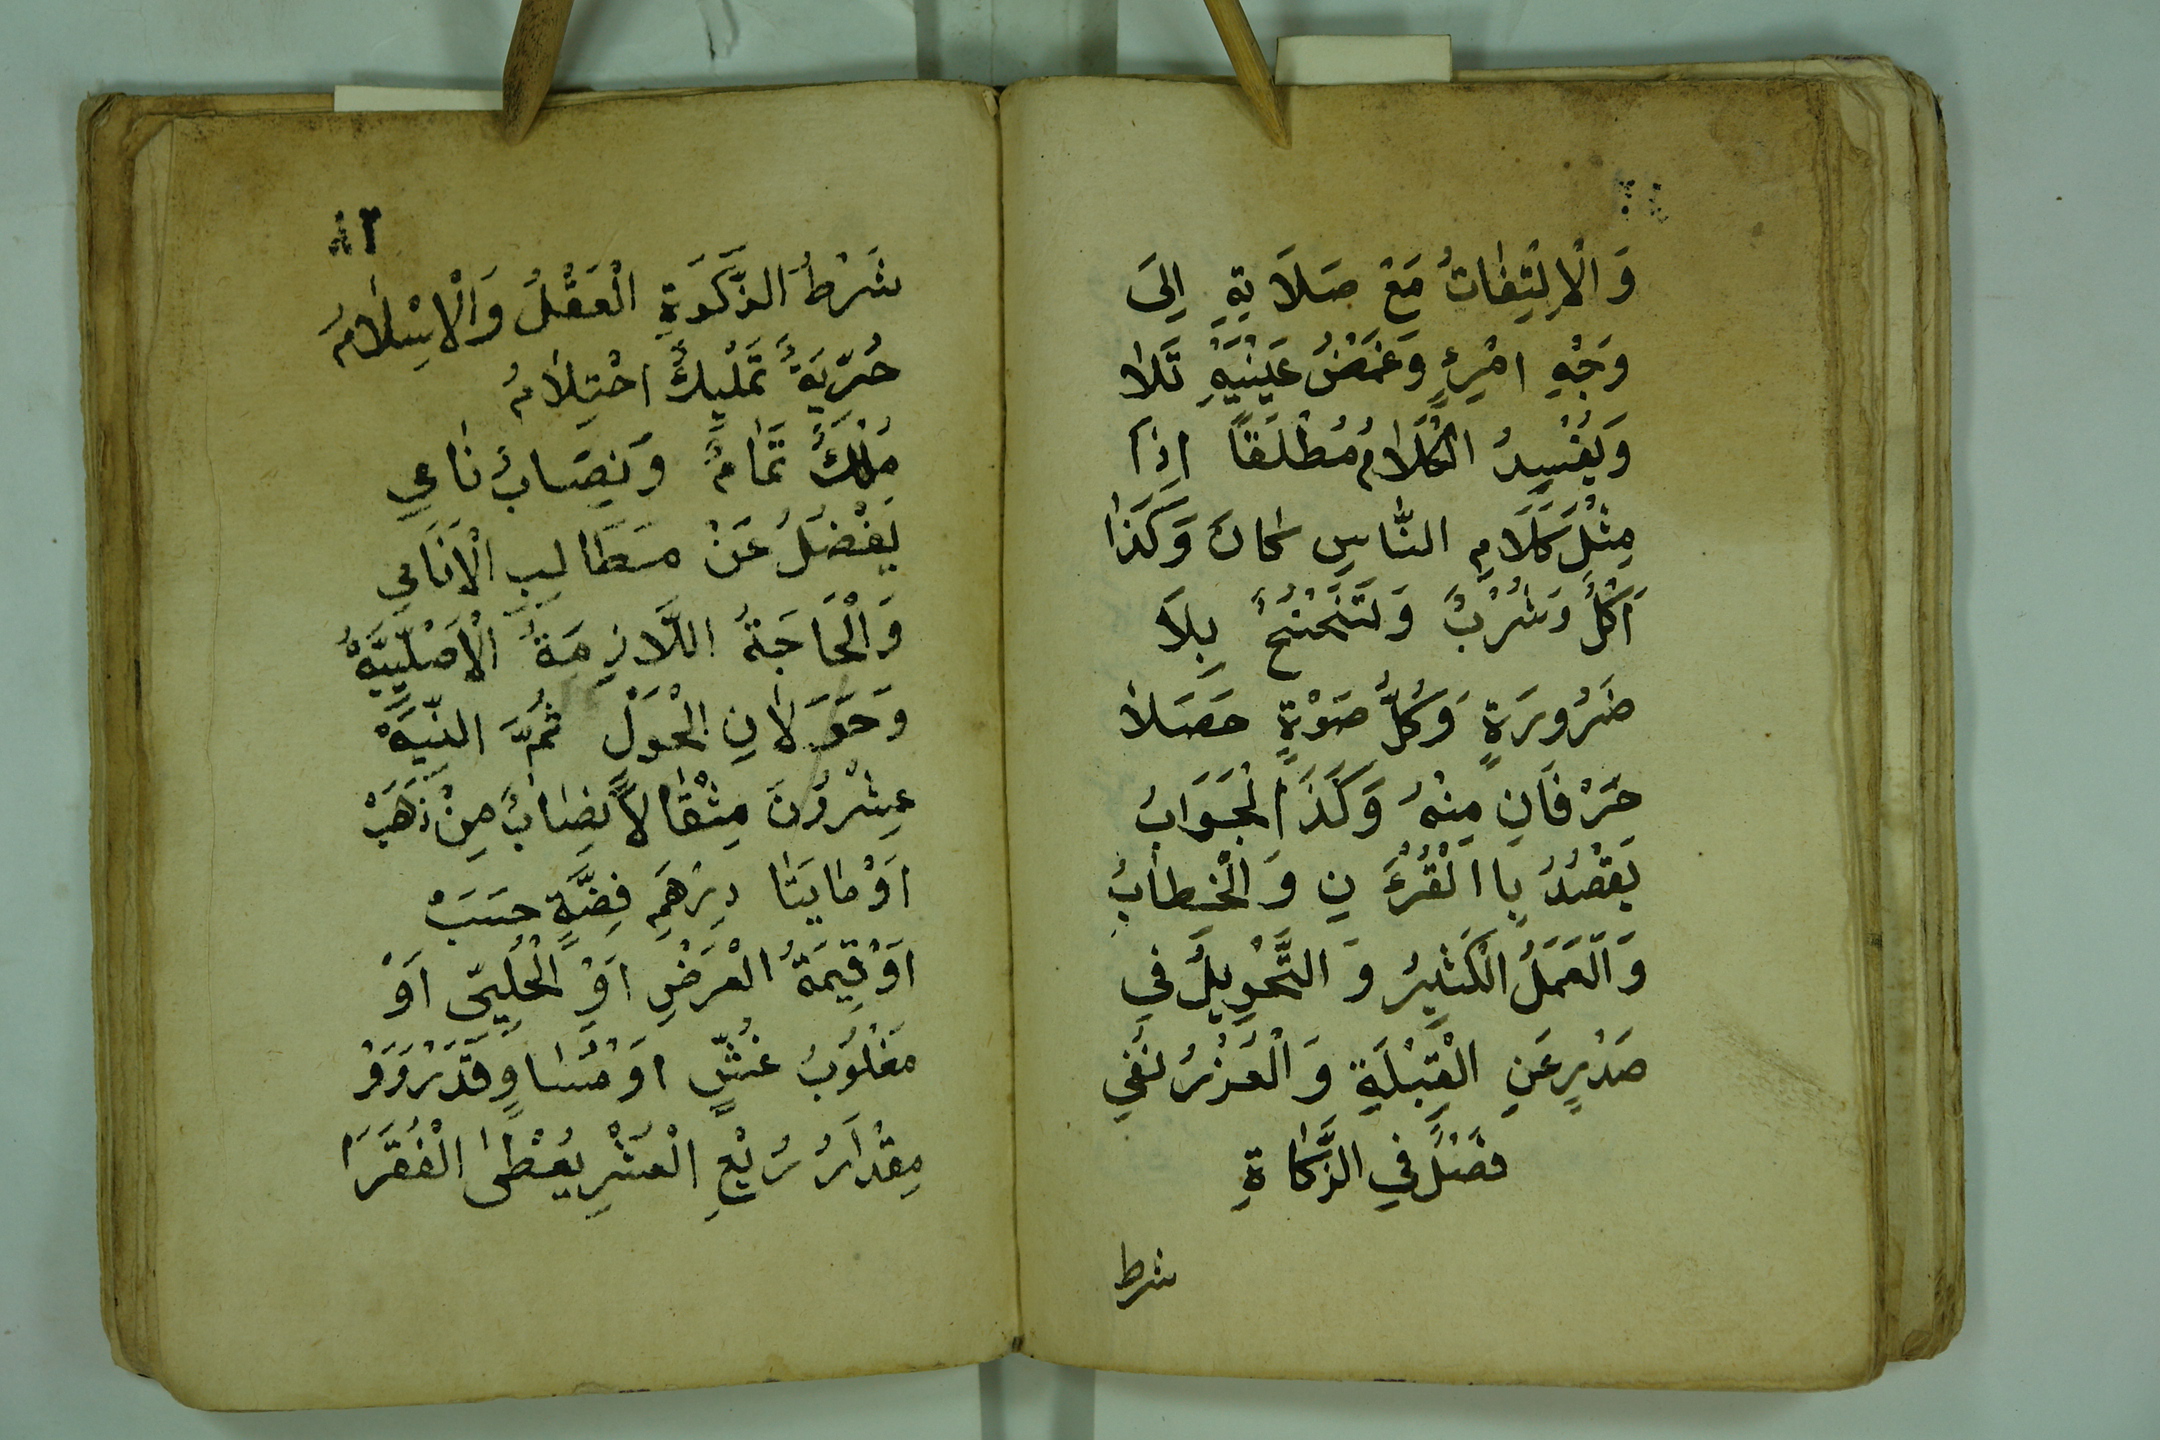 وَالْاِلْتِفَاتُ مَعْ صَلَاتِهِ اِلَى
وَجْهِ امْرِءٍ وَغَمْضُ عَيْنَيْهِ تَلَا
وَيُفْسِدُ الْكَلَامُ مُطْلَقًا اِذَا
مِثْلَ كَلَامِ النَّاسِ كَانَ وَكَذَا
اَكْلٌ وَشُرْبٌ وَتَنَحْنُحٌ بِلَا
ضَرُورَةٍ وَكُلُّ صَوْةٍ حَصَلَا
حَرْفَانِ مِنْهُ وَكَذَا الْجَوَابُ
يَقْصُدُ بِاالْقُرْءَنِ وَالْخِطَابُ
وَالْعَمَلُ الْكَثِيرُ وَالتَّحْوِيلُ فِي
صَدْرٍ عَنِ الْقِبْلَةِ وَالْعَزْرُ نَفِي
فَصْلٌ فِي الزَّكَاةِ
شرط
شَرْطُ الزَّكَوةِ الْعَقْلُ وَالْاِسْلَامُ
حُرِّيَةٌ تَمْلِيكٌ احْتِلَامُ
مِلْكٌ تَمَامٌ وَنِصَابٌ نَامِي
يَفْضُلُ عَنْ مَطَالِبِ الْاَنَامِي
وَالْحَاجَةُ اللَّازِمَةُ الْاَصْلِيَّهْ
وَحَوَلَانِ الْحَوْلِ ثُمَّ النِّيَّهْ
عِشْرُونَ مِثْقَالًا نِصَابٌ مِنْ ذَهَبْ
اَوْ مَايَتَا دِرْهَمِ فِضَّةٍ حَسَبْ
اَوْ قِيمَةُ الْعَرَضِ اَوِ الْحُلِيِّ اَوْ
مَغْلُوبُ غُشٍّ اَوْ مُسَاوٍ قَدْ رَوَوْ
مِقْدَارُ رُبْعِ الْعُشْرِ يُعْطَى الْفُقَرَا